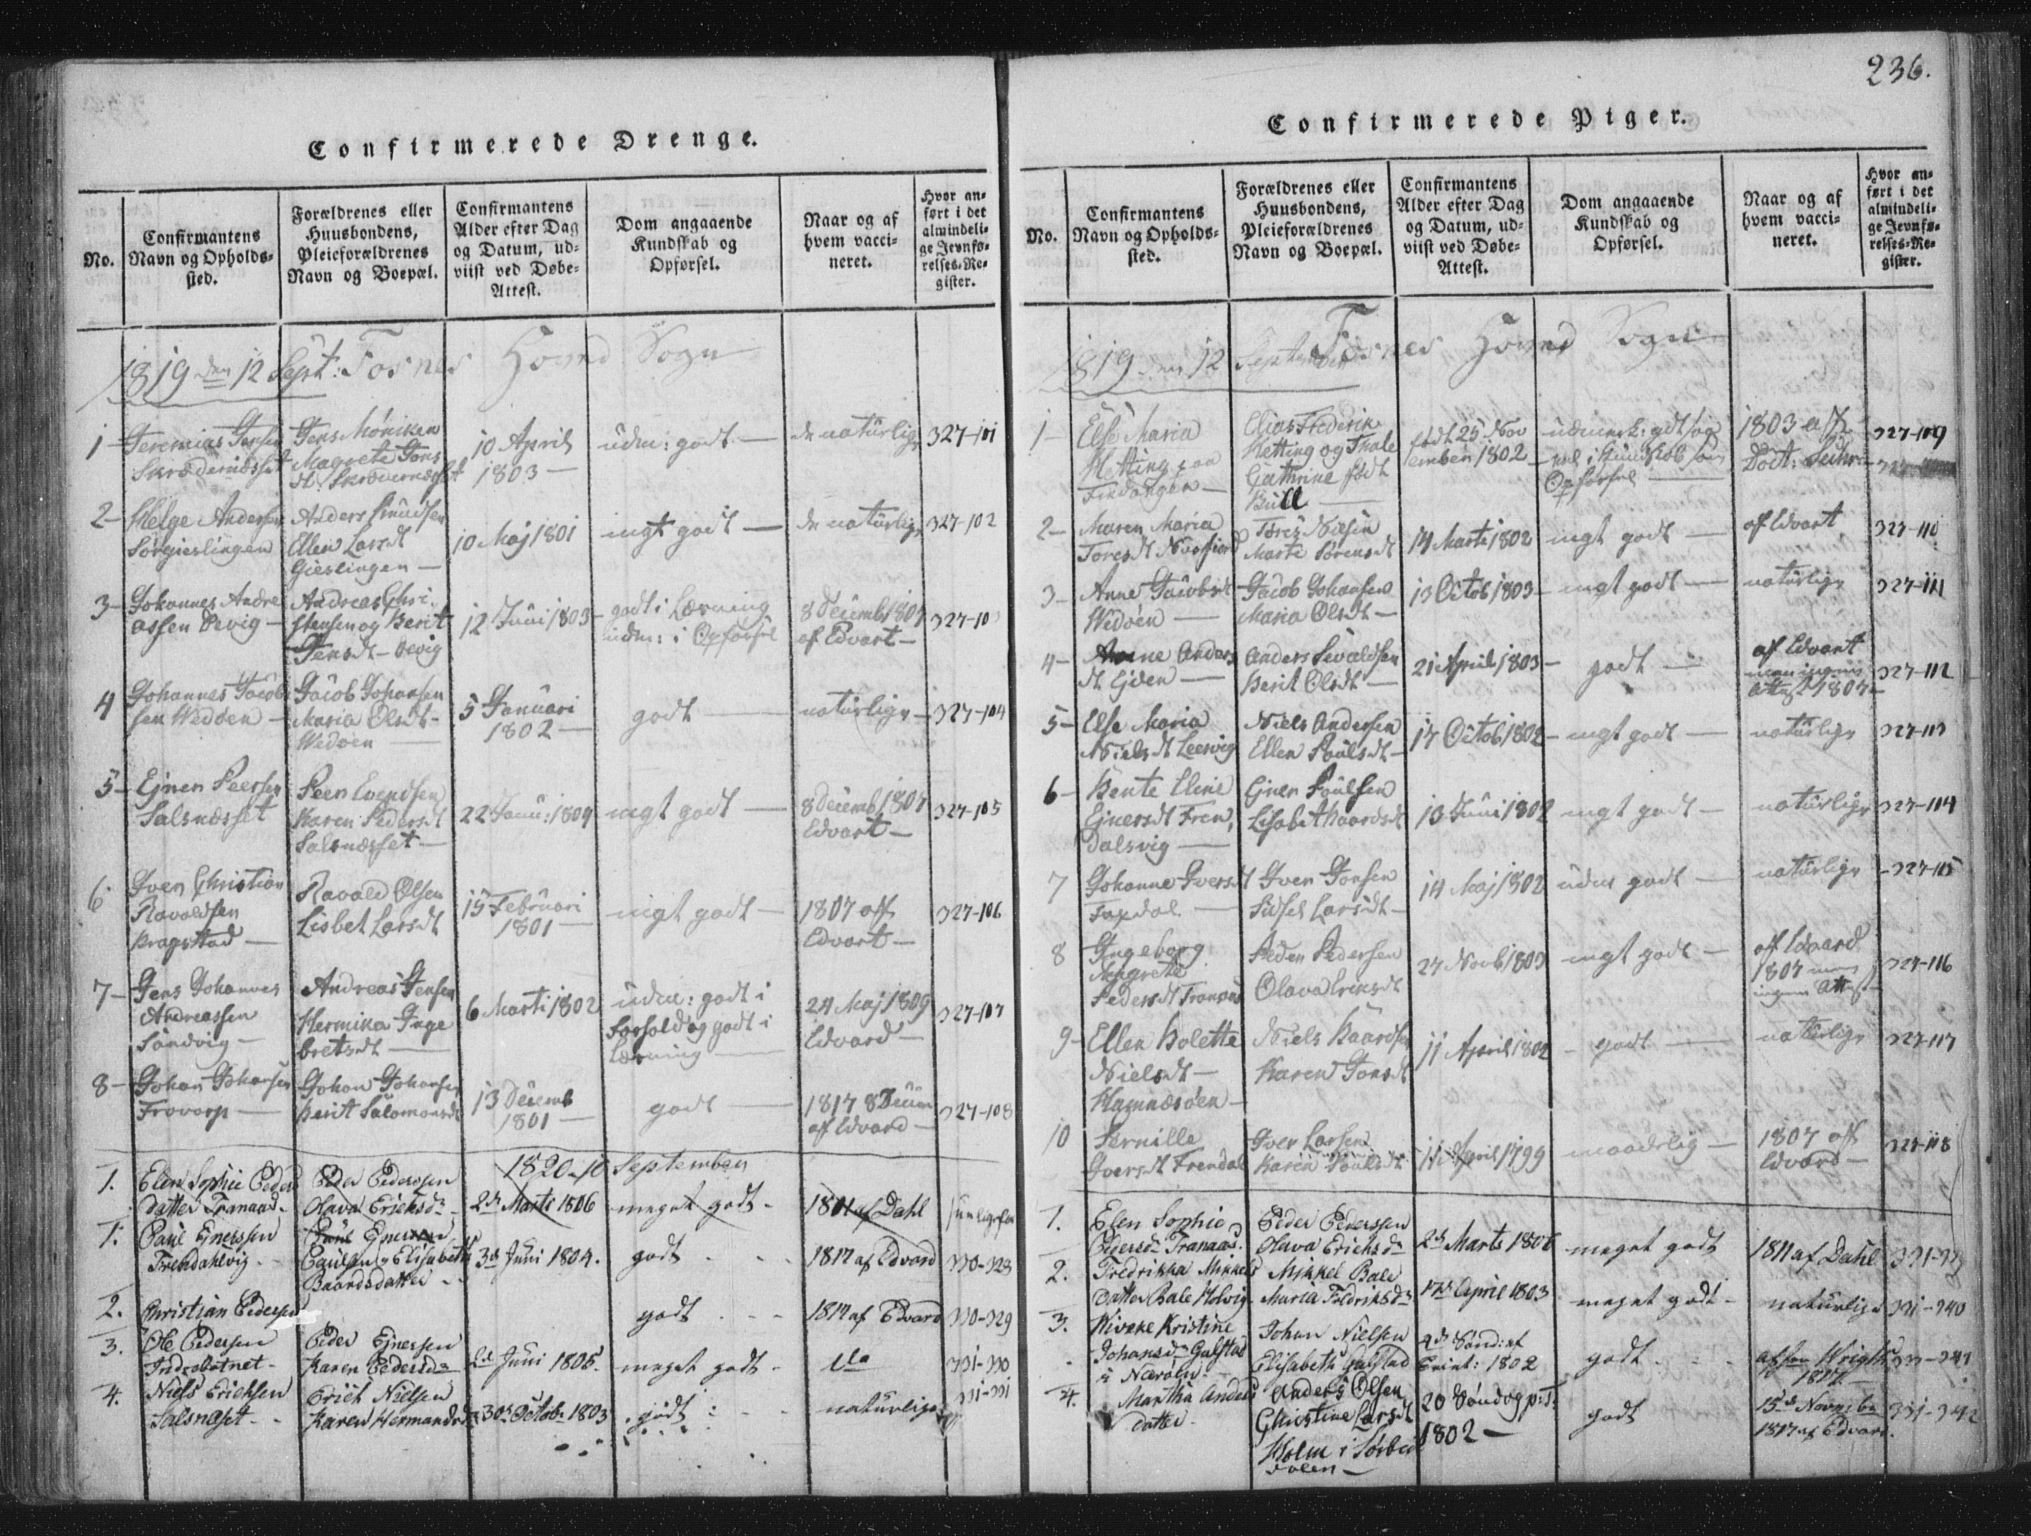 236.
Confirmerede Drenge.
No.
Confirmantens Navn og Opholdssted.
Forældrenes eller Huusbondens, Pleieforældrenes Navn og Boepæl.
Confirmantens Alder efter Dag og Datum, udviist ved Døbe-Attest.
Dom angaaende Kundskab og Opførsel.
Naar og af hvem vaccineret.
Hvor anført i det almindelige Jevnførelses-Register.
1819 den 12 Sept: Fosnes Hoved Sogn
1 Jeremias Jensen
10 April 1803
udm: godt
de naturlige
327-101
2 Helge Andersen Sørgieslingen
Anders Knudsen Ellen Larsdt Gieslingen
10 Maj 1801
mgt godt
de naturlige
327-102
3 Johannes Andreassen Devig
Andreas Christensen og Berit Jensdt Devig
12 Juni 1803
godt i Lærning udm: i Opførsel
8 Decemb 1807 af Edvart
327-103
4 Johannes Jacobsen Wedøen
Jacob Johansen Maria Olsdt Wedøen
5 Januari 1802
godt
naturlige
327-104
5 Ejner Peersen Salsnæsset
Peer Evendsen Karen Pedersdt Salsnæsset
22 Janu: 1804
mgt godt
8 Decemb 1807 Edvart
327-105
6 Iver Christian Ravaldsen Kragstad
Ravald Olsen Lisbet Larsdt
15 Februari 1801
mgt godt
1807 aff Edvart
327-106
7 Jens Johannes Andreassen Sandvig
Andreas Jensen Hermika Ingebretsdt
6 Marti 1802
udm: godt i Forhold og godt i Lærning
24 Maj 1809 Edvard
327-107
8 Johan Johansen
Johan Johansen Berit Salomonsdt
13 Decemb 1801
godt
af Edvard
327-108
1820. 10 September
1. Elen Sophie Peders Datter Tranaas
Peder Pederssen Olava Erichsdr
2d Marts 1806
meget godt
1801 af Dahl
1. Paul Ejnerssen Frendahlvig
Paulsen og Elisabeth Baardsdatter
3d Juni 1804.
godt
1817 af Edvard
330-328
2. Christian Pedersen
godt
1817 af Edvard
330-329
3. Ole Pedersen
Peder Ejnerssen Karen Pedersdr
2d Juni 1805
meget godt
331-330
4. Niels Erichsen Salsnæset
Erich Nielsen Karen Hermandsdr
30d October 1803
godt
naturlige
331-331
Confirmerede Piger.
No.
Confirmantens Navn og Opholdssted.
Forældrenes eller Huusbondens, Pleieforældrenes Navn og Boepæl.
Confirmantens Alder efter Dag og Datum, udviist ved Døbe-Attest.
Dom angaaende Kundskab og Opførsel.
Naar og af hvem vaccineret.
Hvor anført i det almindelige Jevnførelses-Register.
1819 den 12 September Fosnes Hoved Sogn
1 Else Maria Hetting paa Findangen
Elias Frederik Hetting og Thale Cathrine født Bull
født 25 November 1802
1803 aff
327-109
2 Maren Maria Toresdt
Tores Nielsen Marte Sørensdt
14 Marti 1802
mgt godt
af Edvart
327-110
3 Anne Jacobsdt Wedøen
Jacob Johansen Maria Olsdt
13 Octob 1803
mgt godt
naturlige
327-111
4 Anne Andersdt
Anders Sivaldsen Berit Olsdt
21 April 1803
godt
af Edvart men ingen Attest 1807
327-112
5 Else Maria Nielsdt Leervig
Niels Andersen Ellen Poulsdt
17 Octob 1802
mgt godt
naturlige
327-113
6 Bente Eline Ejnersdt Fren, Dalsvig
Ejner Poulsen Lisabet Baardsdt
13 Juni 1802
mgt godt
naturlige
327-114
7 Johanne Iversdt Faxdal
Iver Jonsen Sidsel Larsdt
14 Maj 1802
udm godt
naturlige
327-115
8 Ingeborg Magrete Pedersdt Tranaas
Peder Pedersen Olava Eriksdt
27 Novb 1803
mgt godt
aff Edvard 1807 men ingen Attest
327-116
9 Ellen Bolette Nielsdt
Niels Baardsen Karen Jonsdt
11 April 1802
godt
naturlige
327-117
10 Pernille Iversdt Frendal
Iver Larsen Karen Poulsdt
11 April 1799
maadelig
1807 aff Edvard
327-118
1. Elen Sophie Pedersdr Tranaas.
Peder Pederssen Olava Erichsdr
2d Marts 1806
meget godt
1811 af Dahl
2. Fredrikka Mikkels Datter Bale Holvig
Mikkel Bale Maria Fredriksdr
17d April 1803
meget godt
naturlige
331-340
3. Wiveke Kristine Johansdr Gulstad i Nærøen
Johan Nielsen Elisabeth Gulstad
1802
godt
331-341
4. Martha Anders Datter
Anders Olsen Christine Larsdt Holm i
20 Søndag p:T: 1802
godt
15d Novembr 1817 af Edvard.
331-342